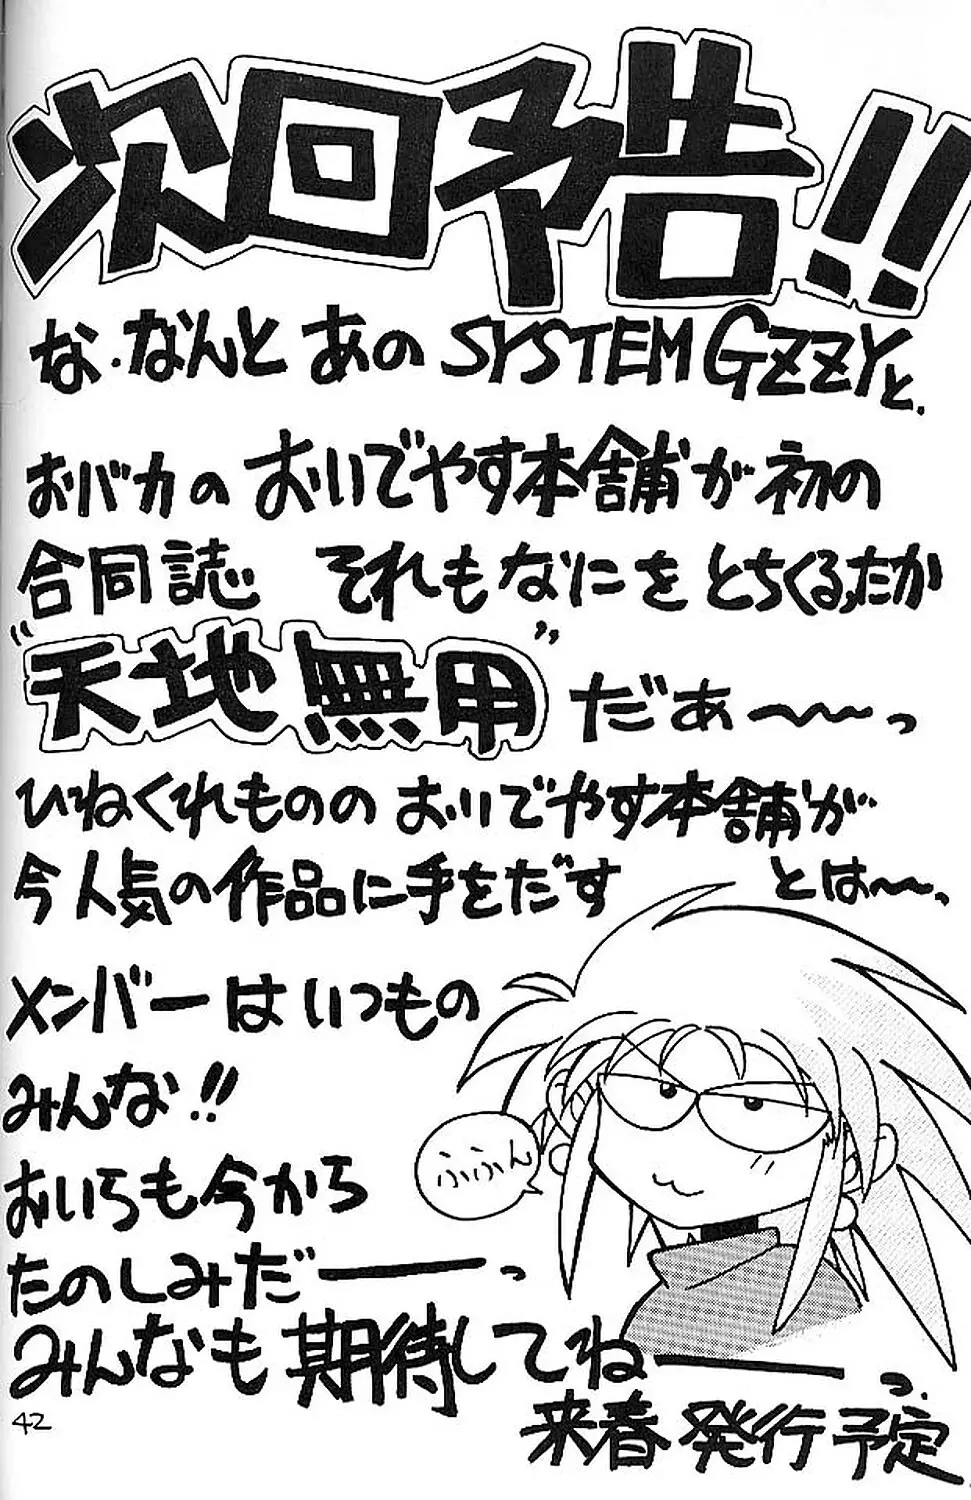 次回予告!!
な.なんと あの SYSTEM GZZYと.
おバカの おいでやす本舗が 初の
合同誌 それもなにをとちくるったか
"天地無用"だぁ〜〜っ
ひねくれものの おいでやす本舗が
今人気の作品に手をだす とは〜〜、
メンバーは いつもの
みんな!!
ふふん
おいらも今から
たのしみだーっ
みんなも期待してねーっ.
来春 発行予定
42